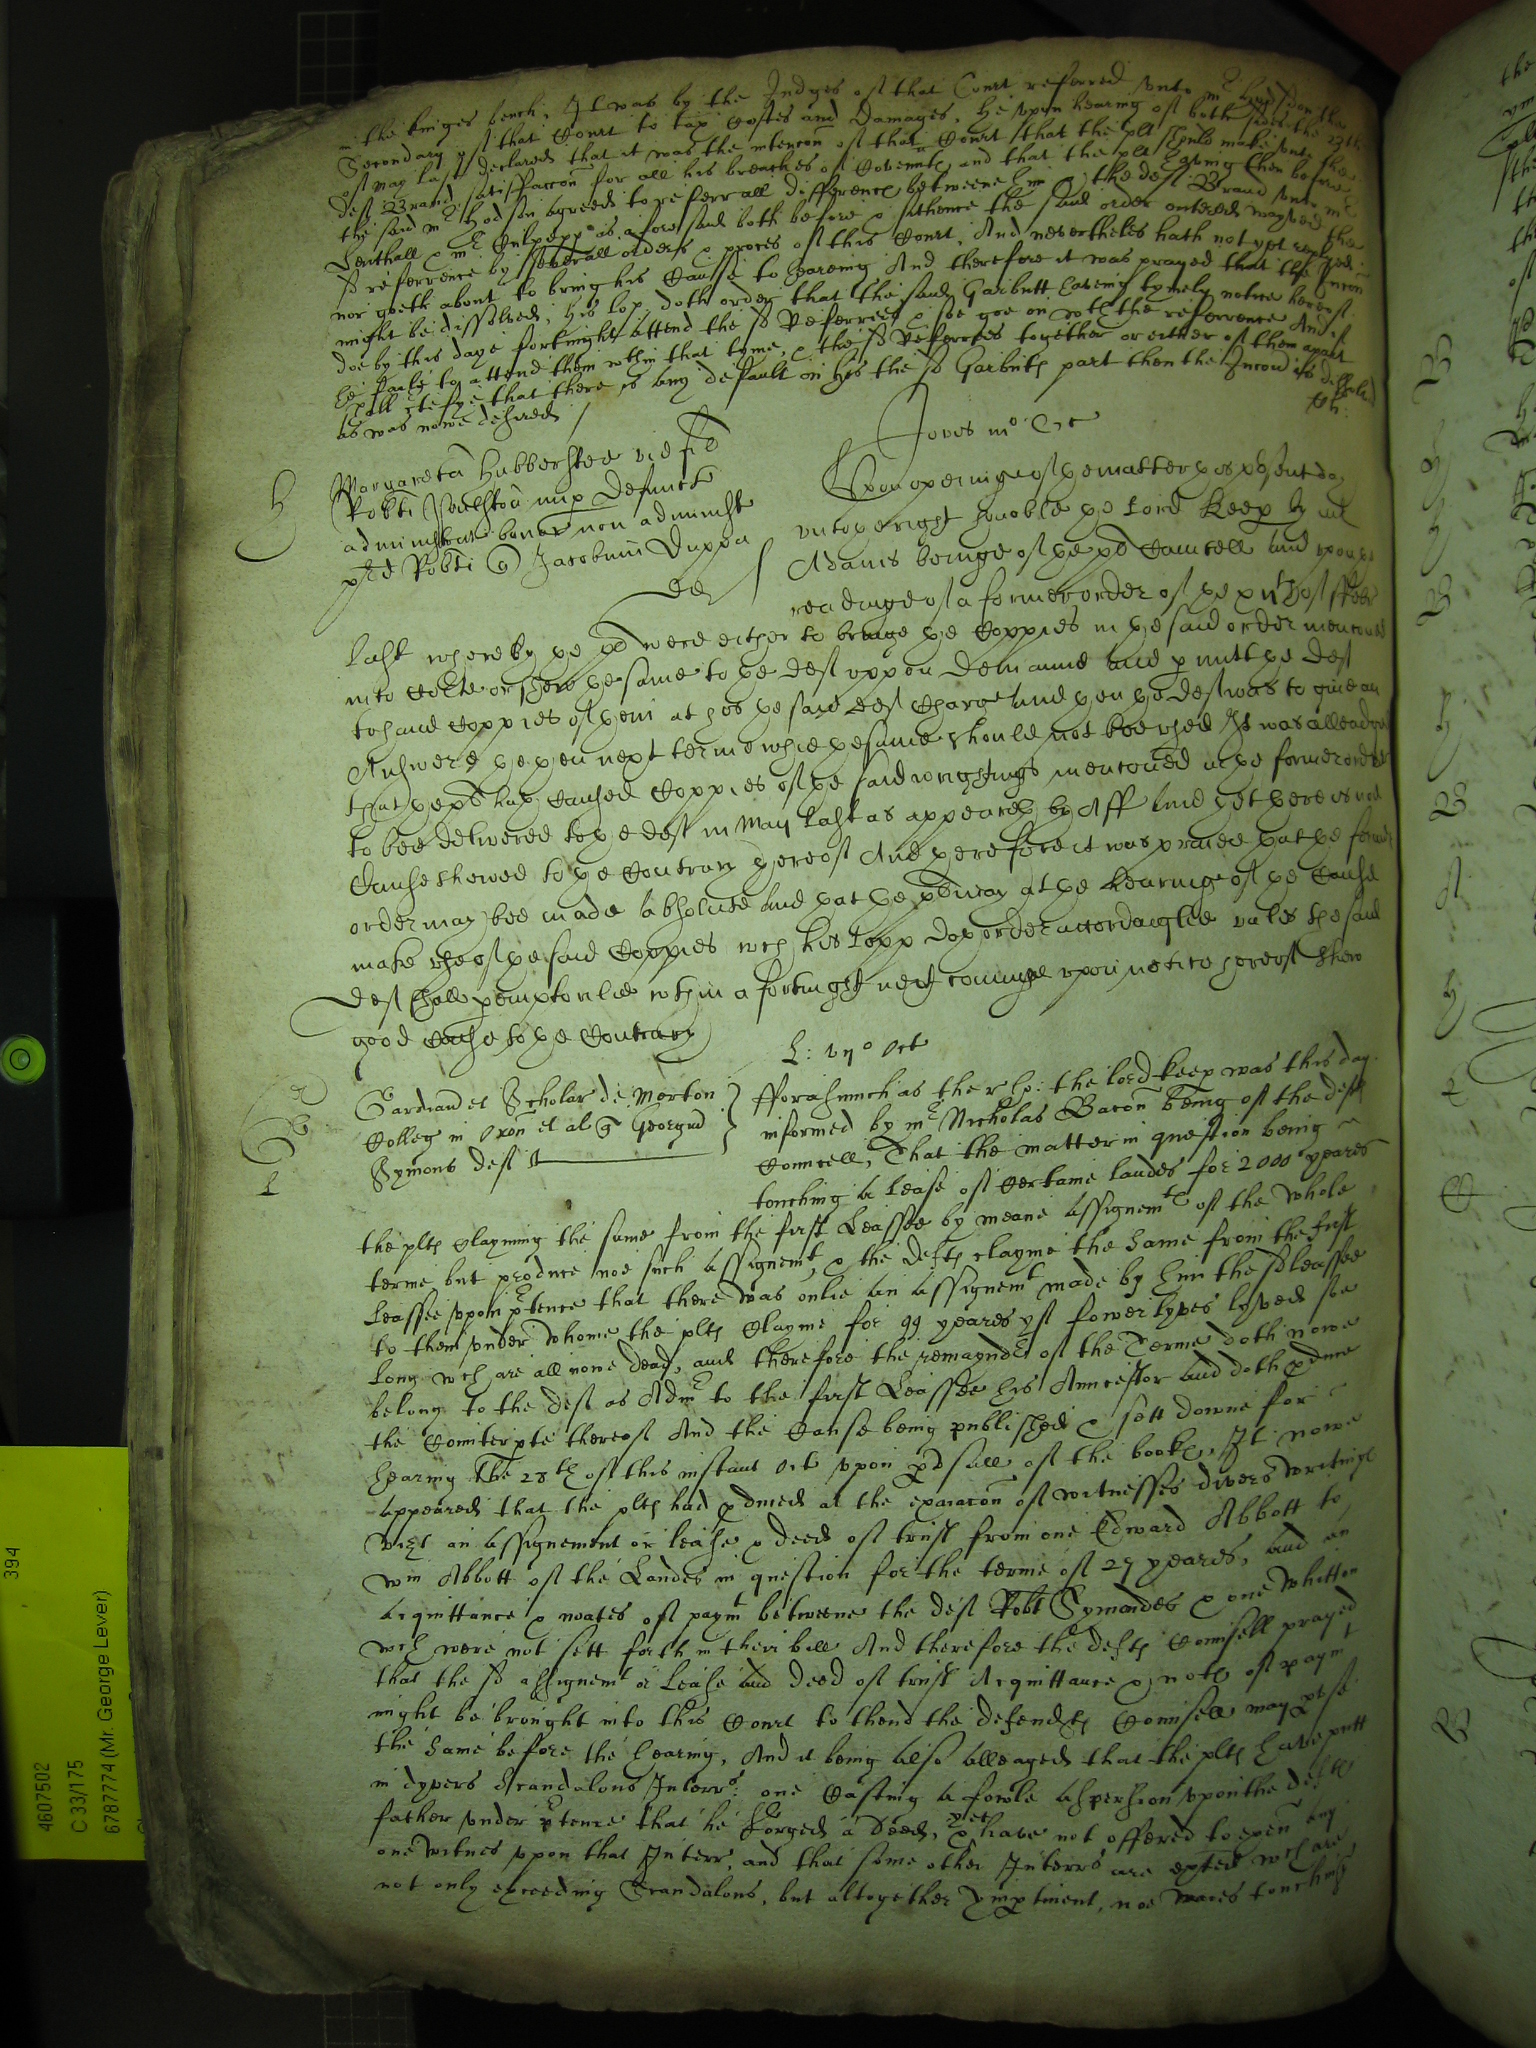 in the kinges bench, It was by the Judges of that Court referred unto mr Hodson the
Secondary of that Court to tax Costes and Damages, he upon hearing of both sides the 23th
of May last declared that it was the intencon of that Court that the plt should make unto the
deft Brand satisfaccon for all his breaches of Covennts and that the plt having then before
the said mr Hodson agreed to referr all differences betweene him & the deft Brand unto mr
Lenthall & mr Culpepper as aforesaid both before & sithence the said order entered wayved the
sd referrence by severall orders & proces of this Court, And nevertheles hath not yet
nor goeth about to bring his Cause to heareing And therefore it was prayed that the Iniuncon
might be dissolved, his lopp doth order that the said Garbutt haveing tymely notice hereof
doe by this daye fortnight attend the sd Referrees & soe goe on wth the referrence And if
he faile to attend them wthin that tyme, & the sd Referrees together or either of them apart
shall certefye that there is any default on his the sd Garbutts part then the Iniuncon is dissolved
as was nowe desired
Jovis mo Oct
Margareta Hubberstee vid
Robti Welston nup defunct
administrat bonor non administr
p red Robti Q Jacobum Duppa
def
Upon openinge of ye matter yis psent day
unto ye right honoble ye Lord Keep by mr
Adams beinge of ye plt Councell and upon ye
readinge of a former order of ye of ffebr
last whereby ye plt were either to bringe ye Coppies in ye said order mencioned
into Corte or shew ye same to ye deft uppon demaund and p mitt ye deft
to have Coppies of yem at his ye said deft Charge and yen ye deft was to give an
Answere ye yen next terme whie ye same should not bee used It was alleadged
that ye plt hath Caused Coppies of ye said wrightings mencioned in ye former order
to bee delivered to ye deft in May last as appeareth by Aff and yet yere is noe
Cause shewed to ye Contrary hereof And yerefore it was praied yat ye former
order may bee made absolute and yat ye plt may at ye hearing of ye Cause
make use of ye said Coppies wch his lopp doth order accordinglie unles the said
deft shall pemptorilie wthin a fortnight next cominge upon notice hereof shew
good Cause to ye Contrary
L: vijo Oct
Gardian et Scholar de Merton
Colleg in Oxon et al Q Georgiu
Symons deft
fforasmuch as the r ho: the lord keep was this day
informed by mr Nicholas Bacon being of the defts
Councell, That the matter in question being
touching a lease of certaine landes for 2000 yeares
the plts clayming the same from the first Leassee by meane assignemt of the whole
terme but produce noe such assignemt, & the defts clayme the same from the first
Leassee upon ptence that there was onlie an assignemt made by him the sd leassee
to them under whome the plts clayme for 99 yeares yf fower lyves lyved soe
long wch are all nowe dead, and therefore the remaynder of the Terme doth nowe
belong to the deft as Admr to the first Leassee his Auncestor and doth pduce
the Counterpte thereof And the Cause being published & sett downe for
hearing the 28th of this instant Oct upon pusall of the bookes, It nowe
appeared that the plts had pduced at the exaiacon of witnesses divers writings
vizt an assignement or lease & deed of trust from one Edward Abbott to
Wm Abbott of the Landes in question for the terme of 29 yeares, and an
acquittance & noates of paymt betweene the deft Robt Symondes & one Whitton
wch were not sett forth in their bill And therefore the defts Counsell prayed
that the sd assignemt or lease and deed of trust Acquittance & notes of paymt
might be brought into this Court to thend the defendts Counsell may puse
the same before the hearing, And it being also alleaged that the plts have putt
in dyvers Scandalous Interrs: one Casting a fowle aspersion upon the defts
father under ptence that he forged a Deed, & yet have not offered to exam any
one witnes upon that Interr, and that some other Interrs are exhted wch are
not only exceeding Scandalous, but altogether impertinent, noe waies touching
394
4607502
C 33/175
6787774 (Mr. George Lever)